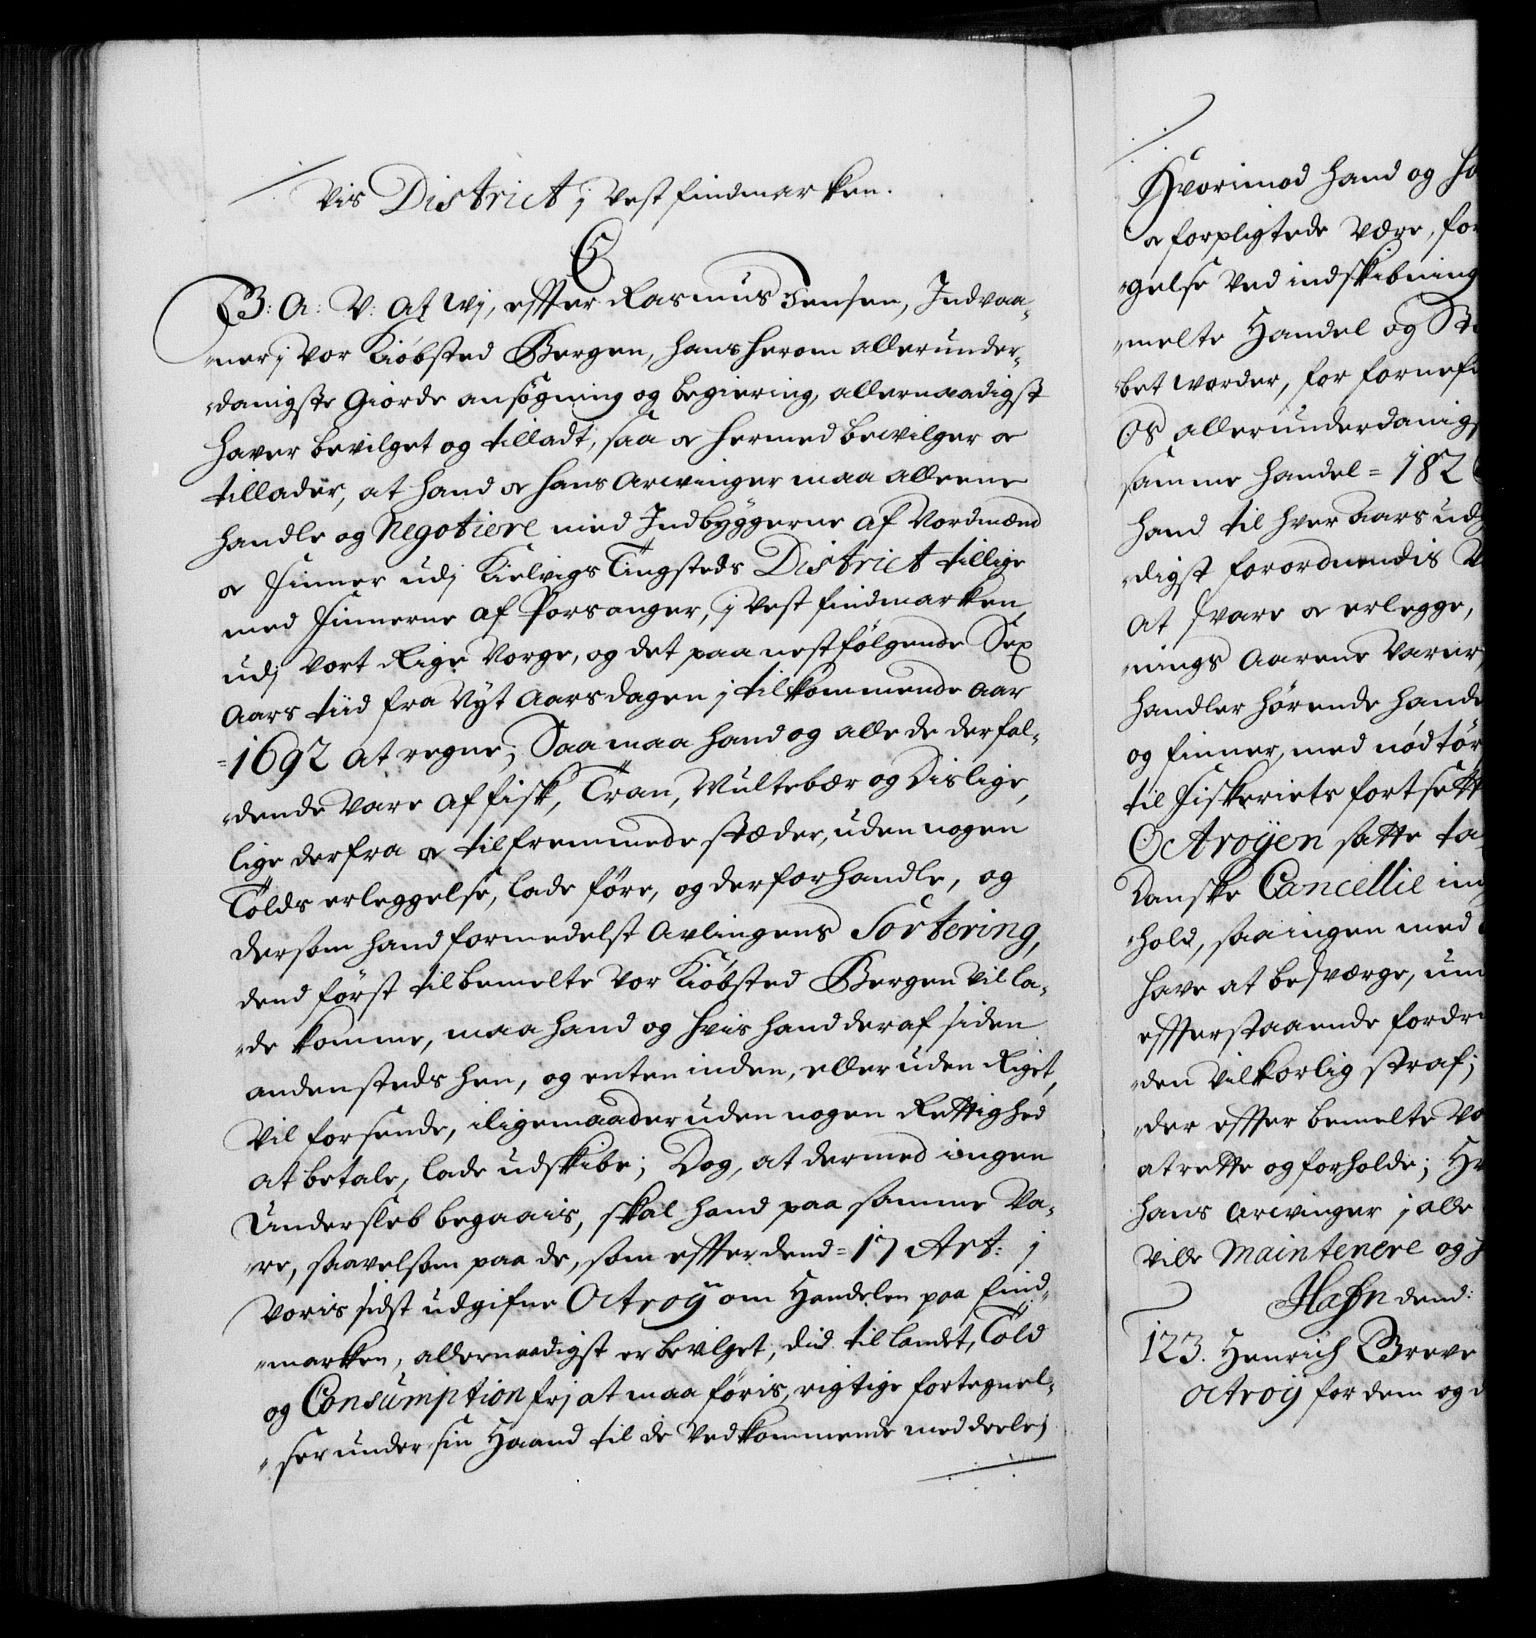 vis District j Vestfindmarken.
C5
G: A: V: At Wj, effter Rasmus Jensen, Indvaa-
ner j Vor Kiøbsted Bergen, hans herom allerunder-
danigste giorde ansøgning og begiering, allernaadigst
haver bevilget og tilladt, saa og hermed bevilger og
tillader, at hand og hans Arvinger maa alleene
handle og Negotiere med Indbyggerne af Nordmænd
og Finner udj Kielvigs Tingsteds District tillige
med Finnerne af Porsanger, j Vestfindmarken
udj Vort Rige Norge, og det paa nestfølgende Sex
Aars tiid fra Nyt Aarsdagen j tilkommende Aar
1692 at regne; Saa maa hand og alle de derfal-
dende Vare af fisk, Tran, Multebær og Deslige,
lige derfra og til fremmede stæder, uden nogen
Tolds erleggelse, lade føre, og derforhandle, og
dersom hand formedelst Avlingens Sortering,
dend først til bemelte Vor Kiøbsted Bergen vil la-
de komme, maa hand og hvis hand deraf siden
andensteds hen, og enten inden, eller uden Riget,
vil forsende, iligemaader uden nogen Rettighed
at betale, lade udskibe; Dog, at dermed ingen
Undersleb begaais, skal hand paa samme Va-
re, saavelsom paa de, som effter dend 17 Art: j
Voris sidst udgifne Octroÿ om Handelen paa Find-
marken, allernaadigst er bevilget, did til landet, Told
og Consumption frj at maa føris, rigtige fortegnel-
ser under sin Haand til de Vedkommende meddeele;
Hvorimod hand og ha
og forpligtede være, for
gelse ved indskibning
melte Handel og
bet worder, for fornefn
Os allerunderdanigst
samme handel 182
hand til hver Aars ud
digst forordnendis
at svare og erlegge,
nings Aarene Varer
handler hørende hande
og finner, med nødtør
til Fiskeriets fortsett
Octroyen satte ta
Danske Cancellie in
hold, saa ingen med
have at besværge, un
effterstaaende fordr
den vilkorlig straf;
der effter bemelte Vo
at rette og forholde; H
hans Arvinger j alle
ville Maintenere og
Hafn dend:
123. Henrich Greve
Octroy for dem og d